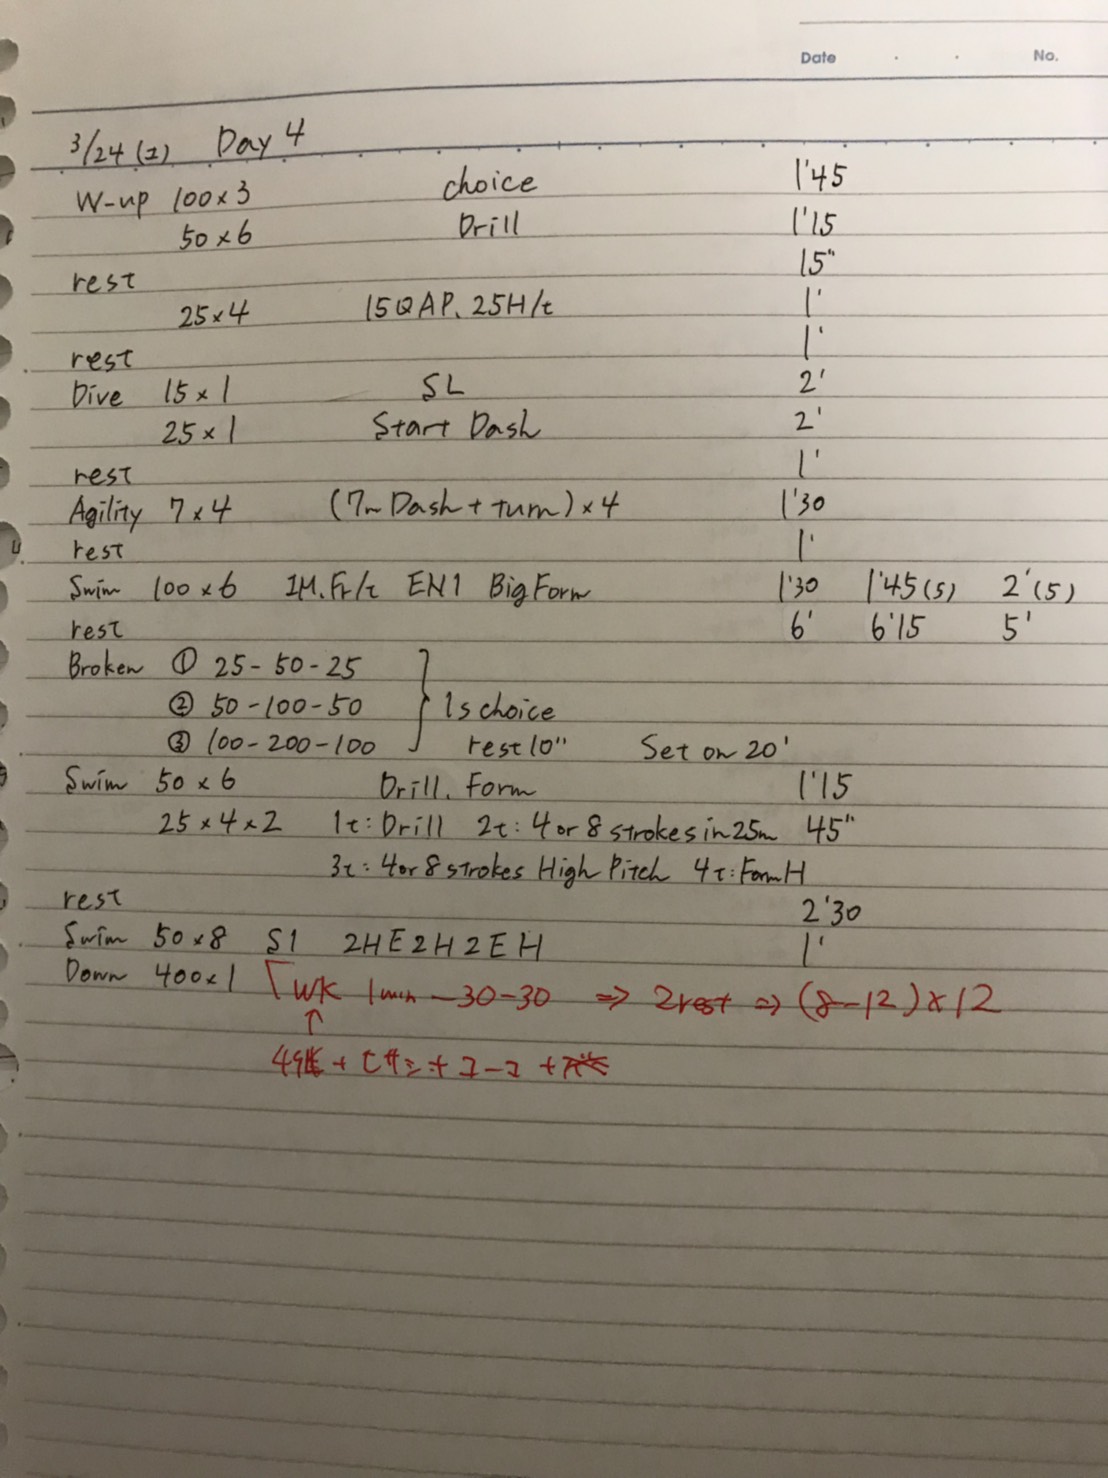 Date . . No.
3/24 (1) Day 4
W-up 100×3 choice 1'45
50×6 Drill 1'15
rest 15"
25×4 15QAP. 25H/t 1'
rest 1'
Dive 15×1 SL 2'
25×1 Start Dash 2'
rest 1'
Agility 7×4 (7m Dash + turn)×4 1'30
rest 1'
Swim 100×6 IM. Fr/t EN1 Big Form 1'30 1'45(5) 2'(5)
rest 6' 6'15 5'
Broken ① 25-50-25
② 50-100-50 1s choice
③ 100-200-100 rest 10" Set on 20'
Swim 50×6 Drill. Form 1'15
25×4×2 1t: Drill 2t: 4 or 8 strokes in 25m 45"
3t: 4or8strokes High Pitch 4t: Form H
rest 2'30
Swim 50×8 S1 2HE2H2EH 1'
Down 400×1
WK 1min-30-30 ⇒ 2rest ⇒ (8-12)×12
↑